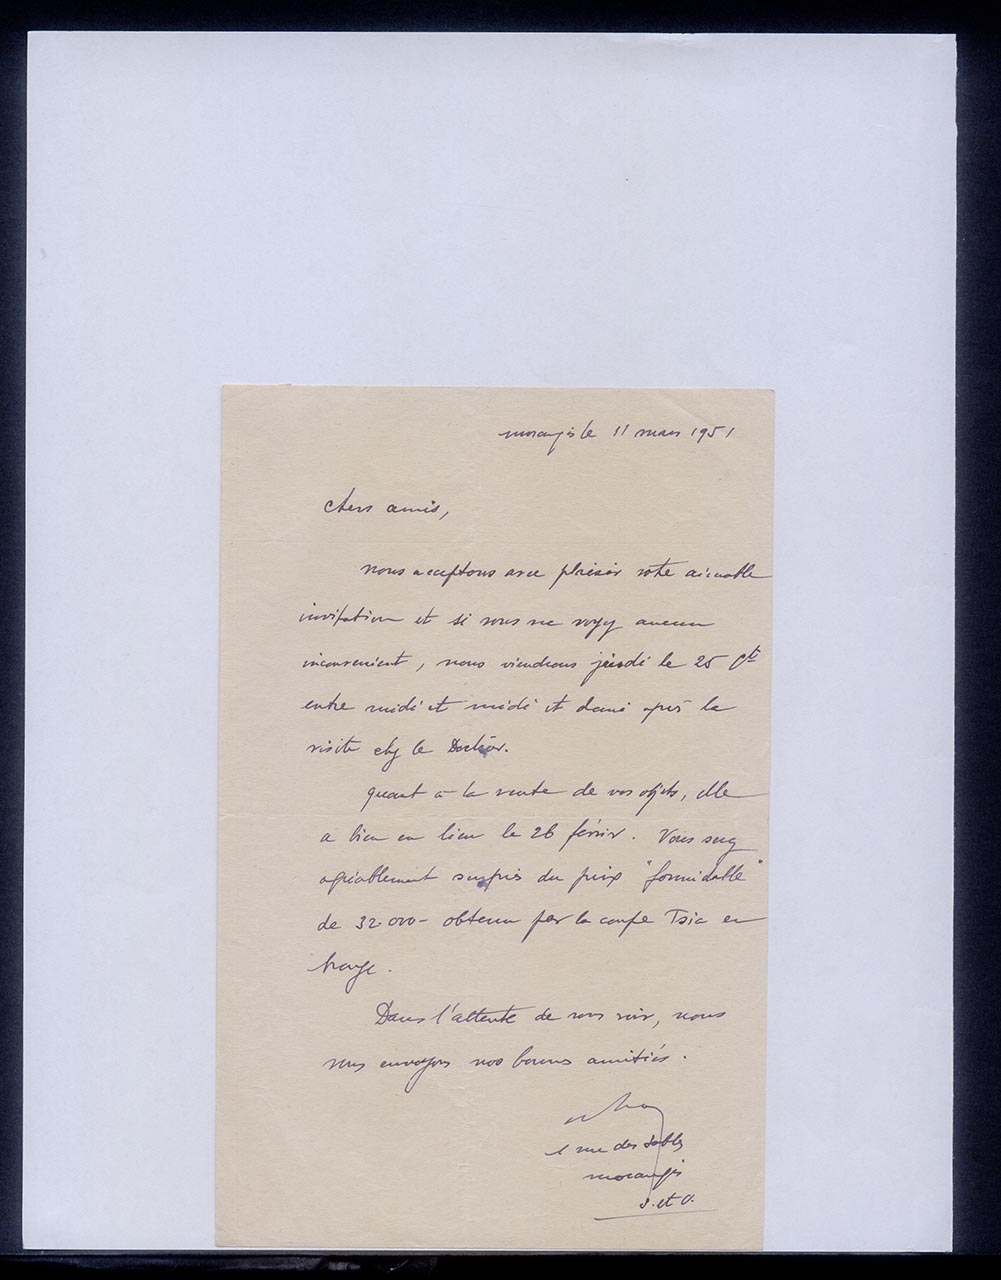 Morangis le 11 mars 1951
Chers amis,
nous acceptons avec plaisir votre aimable
invitation et si vous ne voyez aucun
inconvenient, nous viendrons jeudi le 25 Ct
entre midi et midi et demi après la
visite chez le Docteur.
quant à la vente de vos objets, elle
a bien eu lieu le 26 février. Vous serez
agréablement surpris du prix "formidable"
de 32.000- obtenu par la coupe Tsia en
Dans l'attente de vous voir, nous
vous envoyons nos bonnes amitiés.
1 rue des Sables
Morangis
S. et O.